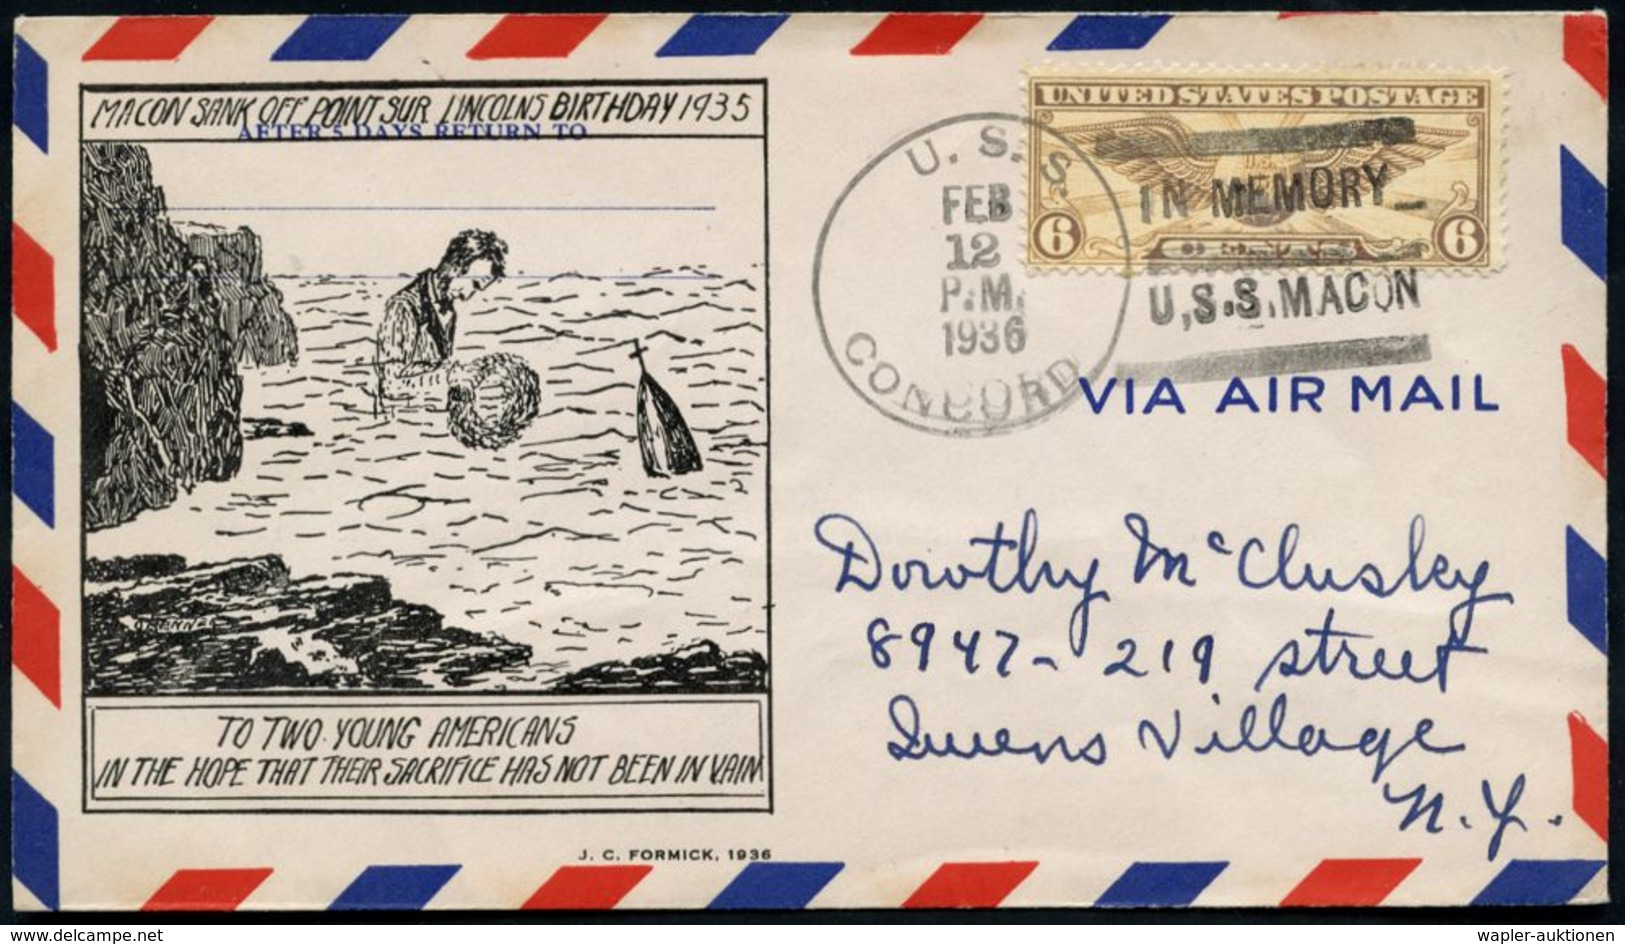 MACON SANK OFF POINT SUR LINCOLNS BIRTHDAY 1935
AFTER 5 DAYS RETURN TO
TO TWO YOUNG AMERICANS
IN THE HOPE THAT THEIR SACRIFICE HAS NOT BEEN IN VAIN
J. C. FORMICK, 1936
U. S. S.
FEB
12
P.M.
1936
CONCORD
UNITED STATES POSTAGE
6 6
IN MEMORY
U.S.S. MACON
VIA AIR MAIL
Dorothy McClusky
8947 - 219 street
Queens Village
N. Y.
www.delcampe.net
wapler-auktionen